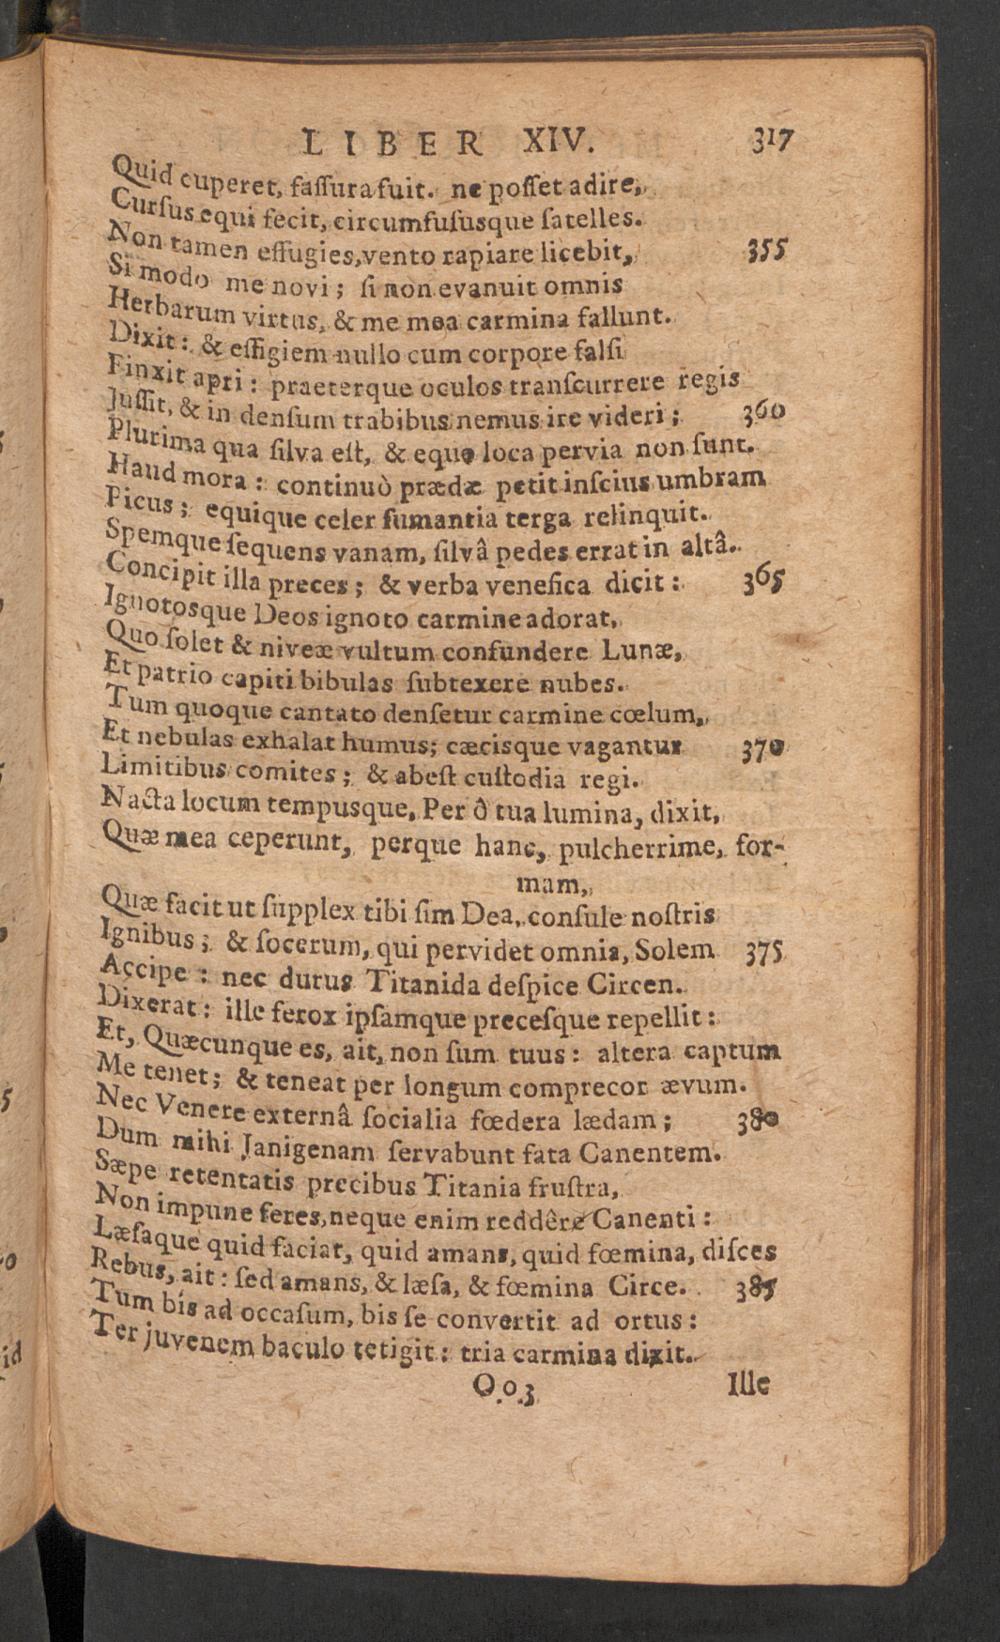 LIBER XIV. 317
Quid cuperet, faſſura fuit. ne poſſet adire,
Curſus equi fecit, circumfuſusque ſatelles.
Non tamen effugies, vento rapiare licebit, 355
Si modo me novi; ſi non evanuit omnis
Herbarum virtus, & me mea carmina fallunt.
Dixit: & effigiem nullo cum corpore falſi
Finxit apri: praeterque oculos tranſcurrere regis
Juſſit, & in denſum trabibus nemus ire videri; 360
Plurima qua ſilva eſt, & equo loca pervia non ſunt.
Haud mora: continuò prædæ petit inſcius umbram
Picus; equique celer fumantia terga relinquit.
Spemque ſequens vanam, ſilvâ pedes errat in altâ.
Concipit illa preces; & verba venefica dicit: 365
Ignotosque Deos ignoto carmine adorat,
Quo ſolet & niveæ vultum confundere Lunæ,
Et patrio capiti bibulas ſubtexere nubes.
Tum quoque cantato denſetur carmine cœlum,
Et nebulas exhalat humus; cæcisque vagantur 370
Limitibus comites; & abeſt cuſtodia regi.
Nacta locum tempusque, Per ô tua lumina, dixit,
Quæ mea ceperunt, perque hanc, pulcherrime, for-
mam,
Quæ facit ut ſupplex tibi ſim Dea, conſule noſtris
Ignibus; & ſocerum, qui pervidet omnia, Solem 375
Accipe: nec durus Titanida deſpice Circen.
Dixerat: ille ferox ipſamque preceſque repellit:
Et, Quæcunque es, ait, non ſum tuus: altera captum
Me tenet; & teneat per longum comprecor ævum.
Nec Venere externâ ſocialia fœdera lædam; 380
Dum mihi Janigenam ſervabunt fata Canentem.
Sæpe retentatis precibus Titania fruſtra,
Non impune feres, neque enim reddêre Canenti:
Læſaque quid faciat, quid amans, quid fœmina, diſces
Rebus, ait: ſed amans, & læſa, & fœmina Circe. 385
Tum bis ad occaſum, bis ſe convertit ad ortus:
Ter juvenem baculo tetigit: tria carmina dixit.
Oo3 Ille